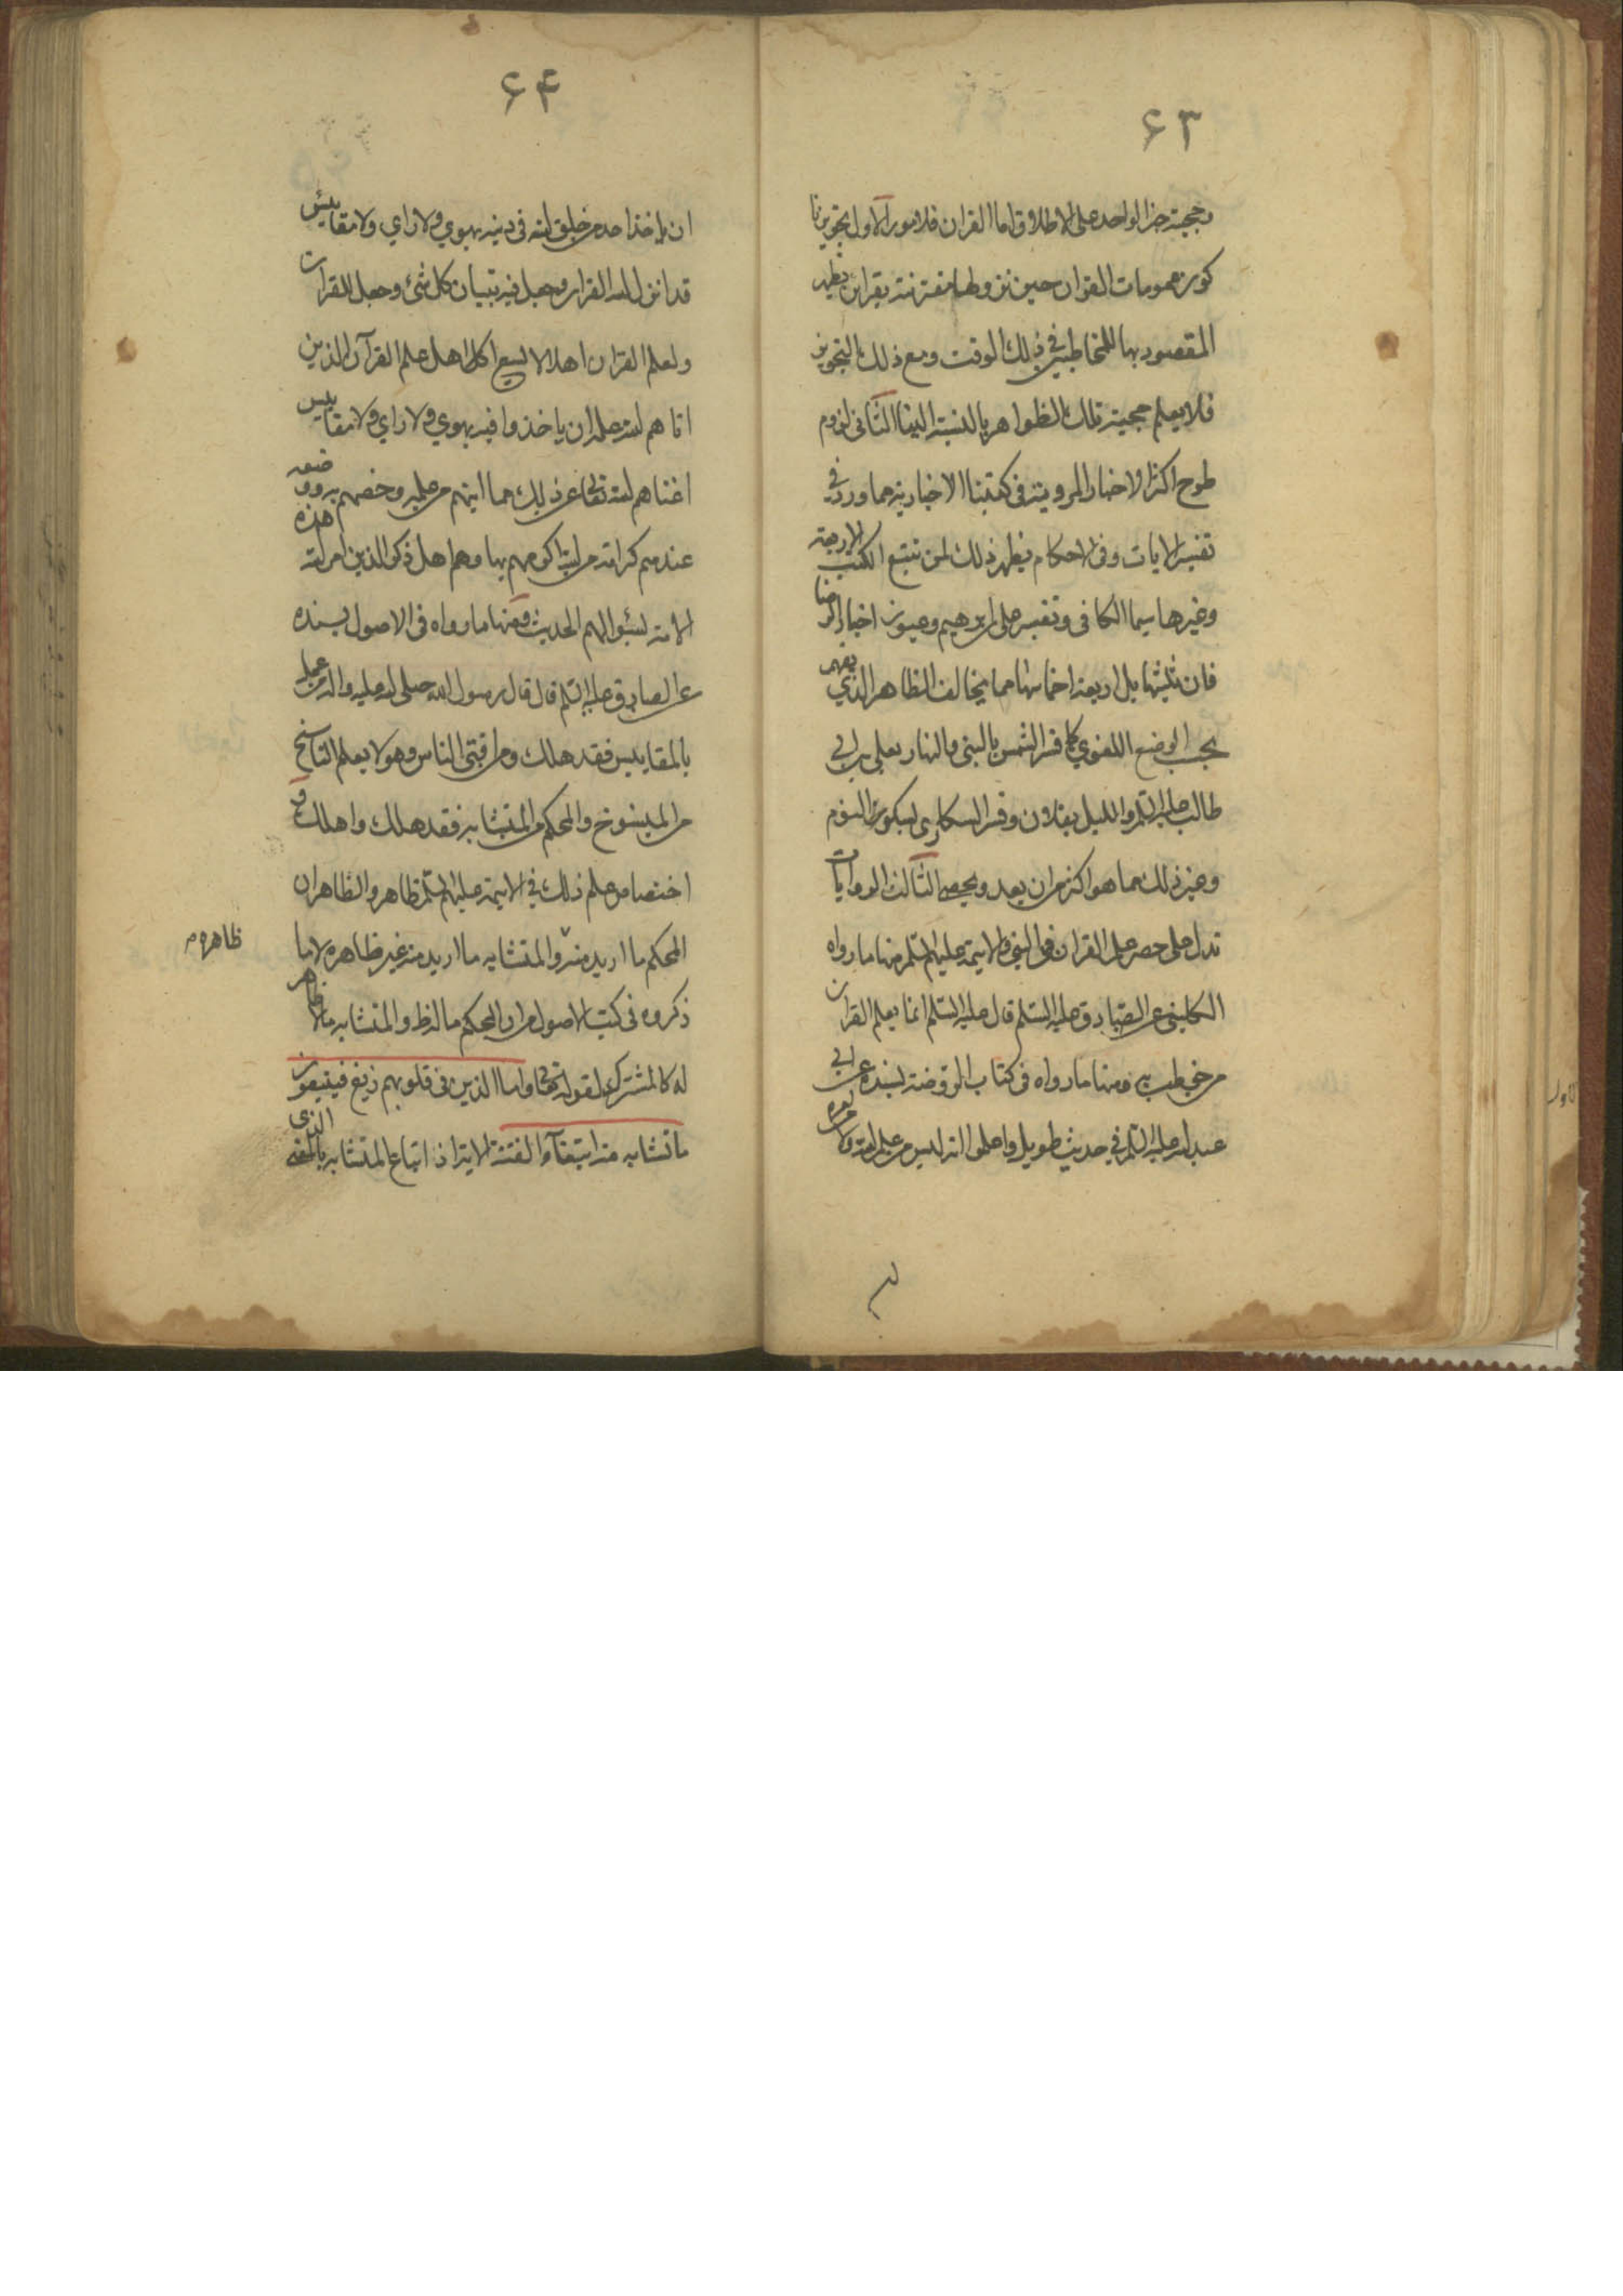 ۶۳
بحجية خبر الواحد على الاطلاق واما القران فلامور الاول تجويزنا
كون عمومات القران حين نزولها مقترنة بقراين يظهر
المقصود بها للمخاطبين في ذلك الوقت ومع ذلك التجويز
فلا يعلم حجية تلك الظواهر بالنسبة الينا الثانى لزوم
طرح اكثر الاخبار المروية فى كتبنا الاخبارية مما ورد فى
تفسير الايات وفى الاحكام يظهر ذلك لمن تتبع الكتب الاربعة
وغيرها سيما الكافى وتفسير على بن ابرهيم وعيون اخبار الرضا
فان ثلثيها بل اربعة اخماسها مما يخالف الظاهر الذي يفهم
بحسب الوضع اللغوي كما فسر الشمس بالنبى والنهار بعلى بن ابى
طالب عليه السلم والليل بفلان وفسر السكارى بسكر النوم
وغير ذلك مما هو اكثر من ان يعد ويحصى الثالث الروايات
تدل على حصر علم القران فى النبى والايمة عليهم السلم منها ما رواه
الكلينى عن الصادق عليه السلم قال عليه السلم انما يعلم القران
من خوطب به ومنها ما رواه فى كتاب الروضة بسنده عن ابى
عبد الله عليه السلم في حديث طويل واعلموا انه ليس من علم الله ولا من امره
۶۴
ان ياخذ احد من خلق الله فى دينه بهوي ولا راي ولا مقاييس
قد انزل الله القران وجعل فيه تبيان كل شئ وجعل للقران
ولعلم القران اهلا لا يسع اهل علم القرآن الذين
اتاهم الله علمه ان ياخذوا فيه بهوي ولا راي ولا مقاييس
اغناهم الله تعالى عن ذلك بما اتيهم من علمه وخصهم به ووضعه
عندهم كرامة من الله اكرمهم بها وهم اهل ذكر الذين امر الله هذه
الامة بسؤالهم الحديث ومنها ما رواه فى الاصول بسنده
عن الصادق عليه السلم قال قال رسول الله صلى الله عليه واله من عمل
بالمقاييس فقد هلك ومن افتى الناس وهو لا يعلم الناسخ
من المنسوخ والمحكم من المتشابه فقد هلك واهلك و
اختصاص علم ذلك في الايمة عليهم السلم ظاهر والظاهر ان
المحكم ما اريد منه والمتشابه ما اريد منه غير ظاهره لا ما
ظاهره م
ذكروه فى كتب الاصول من ان المحكم ماله ظ والمتشابه مالا ظاهر
له كالمشترك لقوله تعالى واما الذين فى قلوبهم زيغ فيتبعون
ما تشابه منه ابتغآء الفتنة الاية اذ اتباع المتشابه بالمعنى الذى